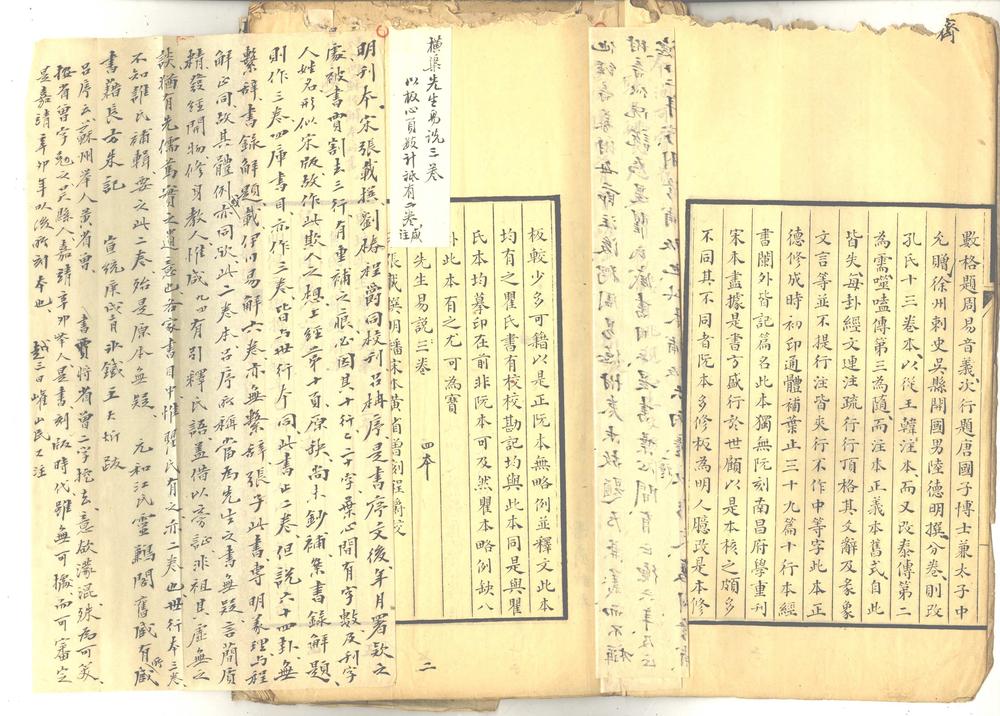 齊
數格題周易音義次行題唐國子博士兼太子中
允贈徐州刺史吳縣開國男陸德明撰分卷則改
孔氏十三卷本以從王韓注本而又改泰傳第二
為需噬嗑傳第三為隨而注本正義本舊式自此
皆失每卦經文連注疏行行頂格其爻辭及彖象
文言等並不提行注皆夾行不作中等字此本正
德修成時初印通體補葉止三十九篇十行本經
書闌外皆記篇名此本獨無阮刻南昌府學重刊
宋本盡據是書方盛行於世顧以是本核之頗多
不同其不同者阮本多修板為明人臆改是本修
板較少多可藉以是正阮本無略例並釋文此本
均有之瞿氏書有校勘記均與此本同是與瞿
氏本均摹印在前非阮本可及然瞿本略例缺八
卦此本有之尤可為寶
先生易說三卷 四本
張載撰明繙宋本黃省曾刻程爵校
二
橫渠先生易說三卷
以板心頁數計祗有二卷
明刊本宋張載撰劉㮛程爵同校刊呂柟序是書序文後年月署欵之
處被書賈割去三行有重補之痕必因其十行二十字葉心間有字數及刊字
人姓名形似宋版故作此欺人之想上經第十頁原缺尚未鈔補集書錄解題
則作三卷四庫書目亦作三卷皆與世行本同此書止二卷但說六十四卦無
繫辭書錄解題載伊川易解六卷亦無繫辭張子此書專明義理與程
解正同故其體例亦同歟此二卷本呂序所稱當為先生之書無疑言簡質
精發經開物修身教人惟咸九四有引釋氏語蓋借以旁證非祖其虛無之
談猶有先儒篤實之遺意也各家書目中惟瞿氏有之亦二卷也世行本三卷
不知誰氏補輯要之此二卷殆是原本無疑 元和江氏靈鶼閣舊藏有藏
書籍長方朱記 宣統庚戌 王 跋
呂序云蘇州舉人黃省曾 書賈將省曾二字挖去意欲濛混殊為可笑
按省曾字勉之吳縣人嘉靖辛卯舉人是書刻版時代雖無可據而可審定
是嘉靖辛卯年以後所刻本也 越三日嶧山民又注